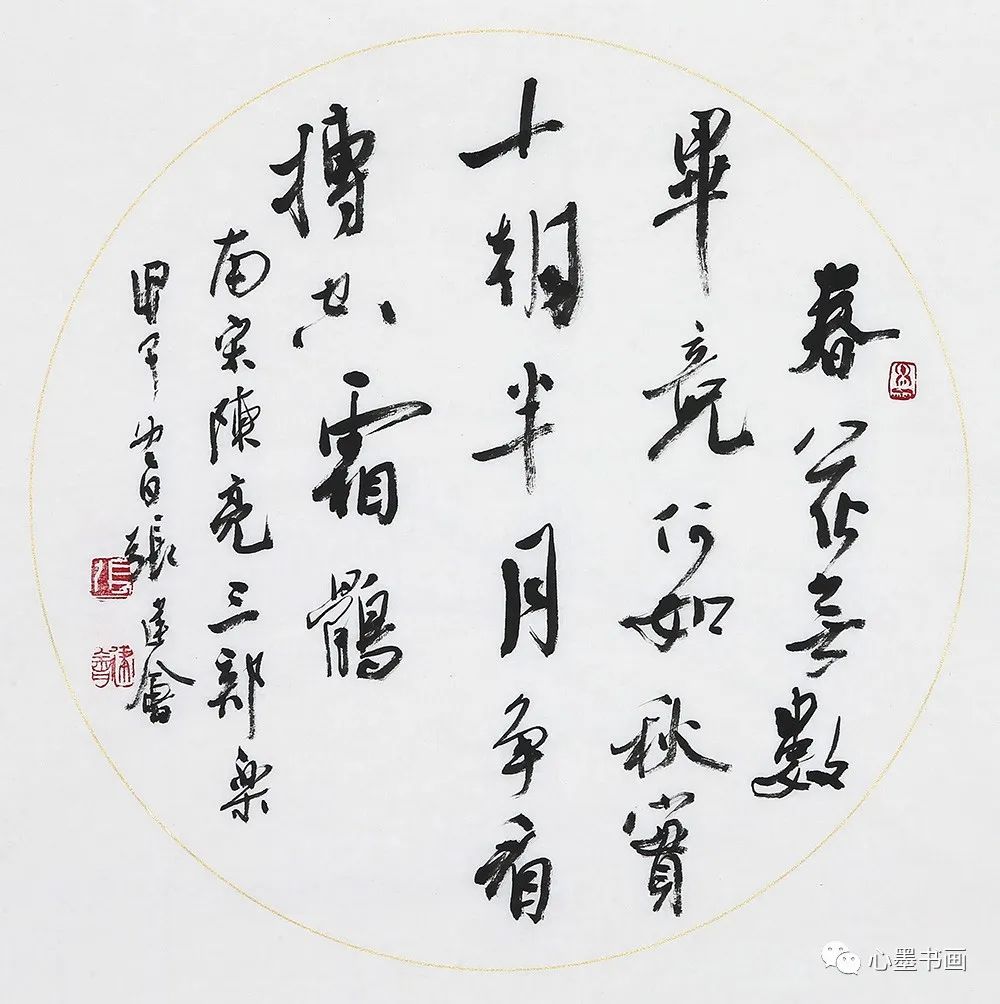 春花無數
畢竟何如秋實
十朝半月争看
搏空霜鶻
南宋陳亮三部樂
甲午 張建會
心墨书画